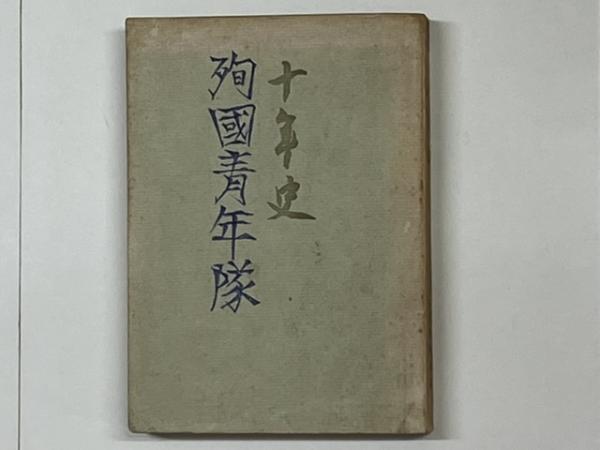 十年史
殉國青年隊